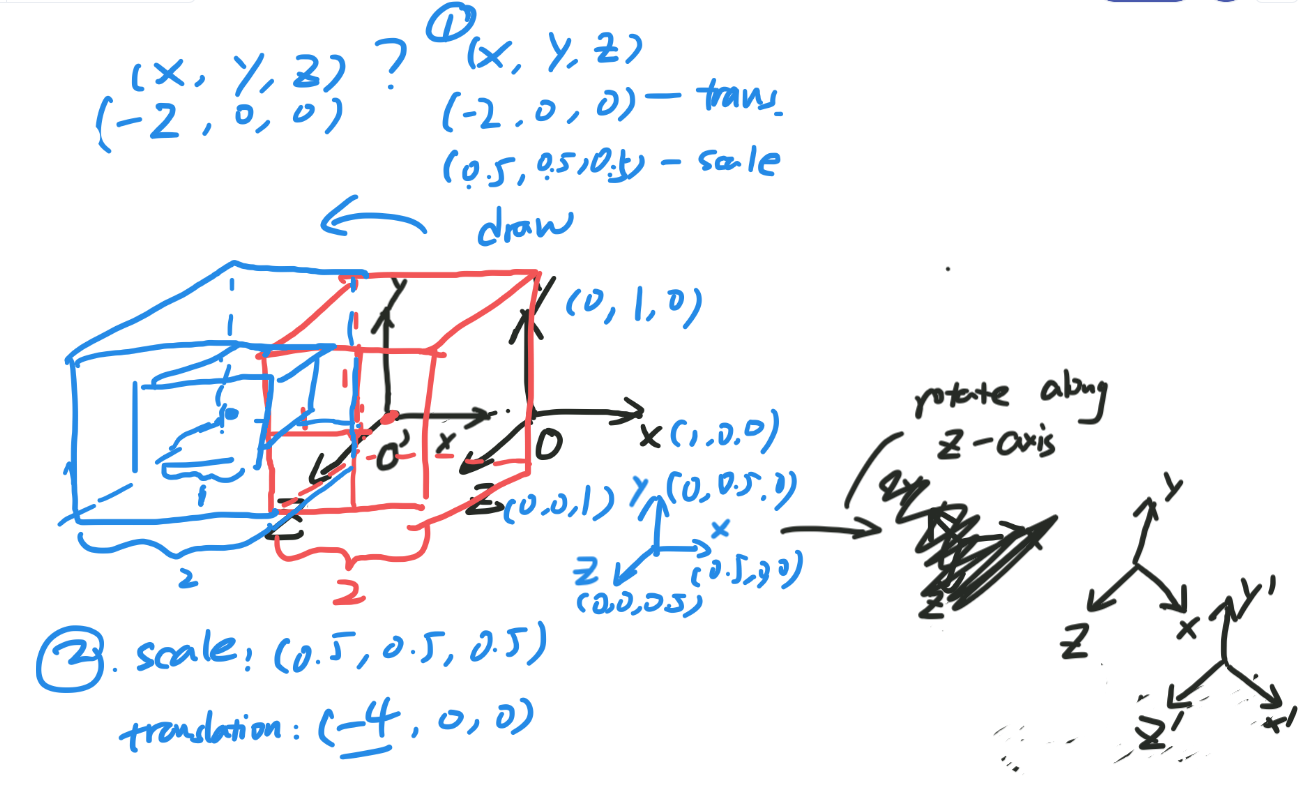 (x, y, z) ?
(-2, 0, 0)
① (x, y, z)
(-2, 0, 0) — trans.
(0.5, 0.5, 0.5) — scale
draw
y
y (0, 1, 0)
x
O'
O
x (1, 0, 0)
z
z (0, 0, 1)
1
2
2
y (0, 0.5, 0)
x
(0.5, 0, 0)
z
(0, 0, 0.5)
rotate along
z-axis
z
y
x
z
y'
x'
z'
②. scale: (0.5, 0.5, 0.5)
translation: (-4, 0, 0)